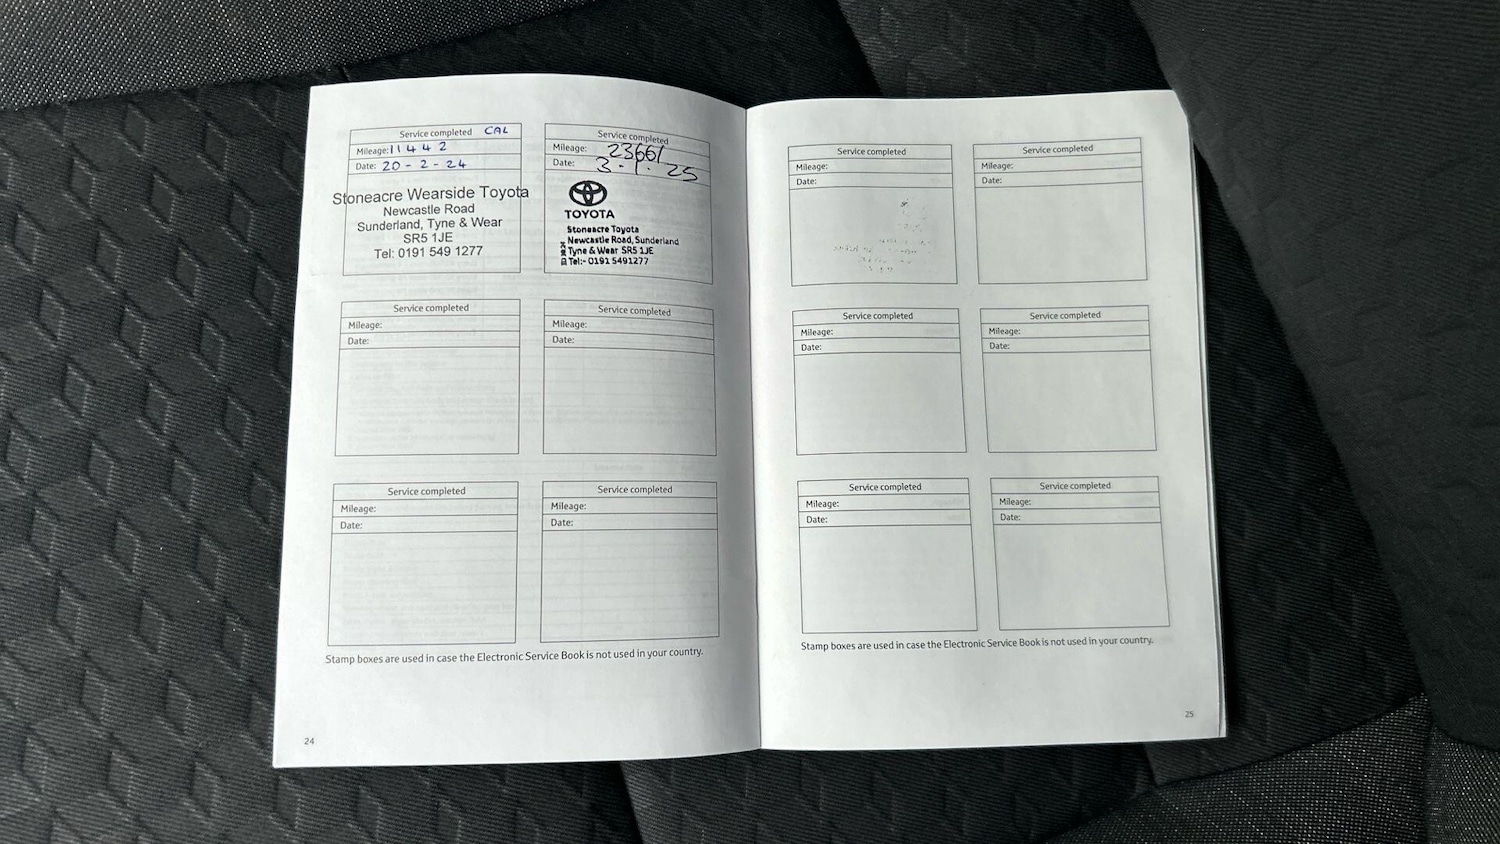 Service completed CAL
Mileage: 11442
Date: 20-2-24
Stoneacre Wearside Toyota
Newcastle Road
Sunderland, Tyne & Wear
SR5 1JE
Tel: 0191 549 1277
Service completed
Mileage: 23661
Date: 3.1.25
TOYOTA
Stoneacre Toyota
Newcastle Road, Sunderland
Tyne & Wear SR5 1JE
Tel:- 0191 5491277
Service completed
Mileage:
Date:
Service completed
Mileage:
Date:
Service completed
Mileage:
Date:
Service completed
Mileage:
Date:
Stamp boxes are used in case the Electronic Service Book is not used in your country.
24
Service completed
Mileage:
Date:
Service completed
Mileage:
Date:
Service completed
Mileage:
Date:
Service completed
Mileage:
Date:
Service completed
Mileage:
Date:
Service completed
Mileage:
Date:
Stamp boxes are used in case the Electronic Service Book is not used in your country.
25